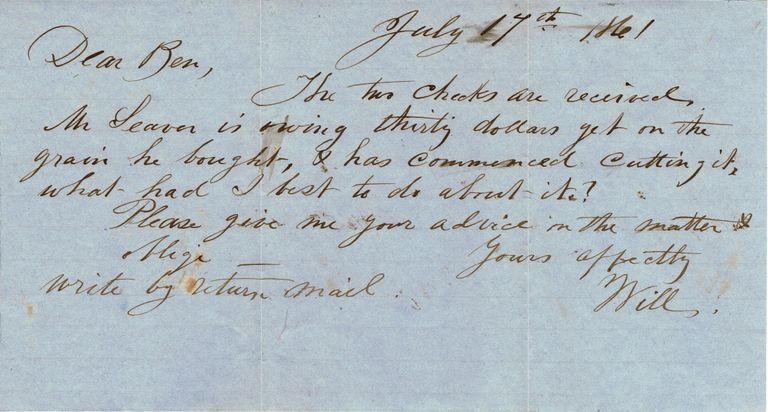 July 17th 1861
Dear Ben,
The two checks are received.
Mr Seaver is owing thirty dollars yet on the
grain he bought, & has commenced cutting it,
what had I best to do about it?
Please give me your advice in the matter &
oblige — Yours affectly
write by return mail. Will.